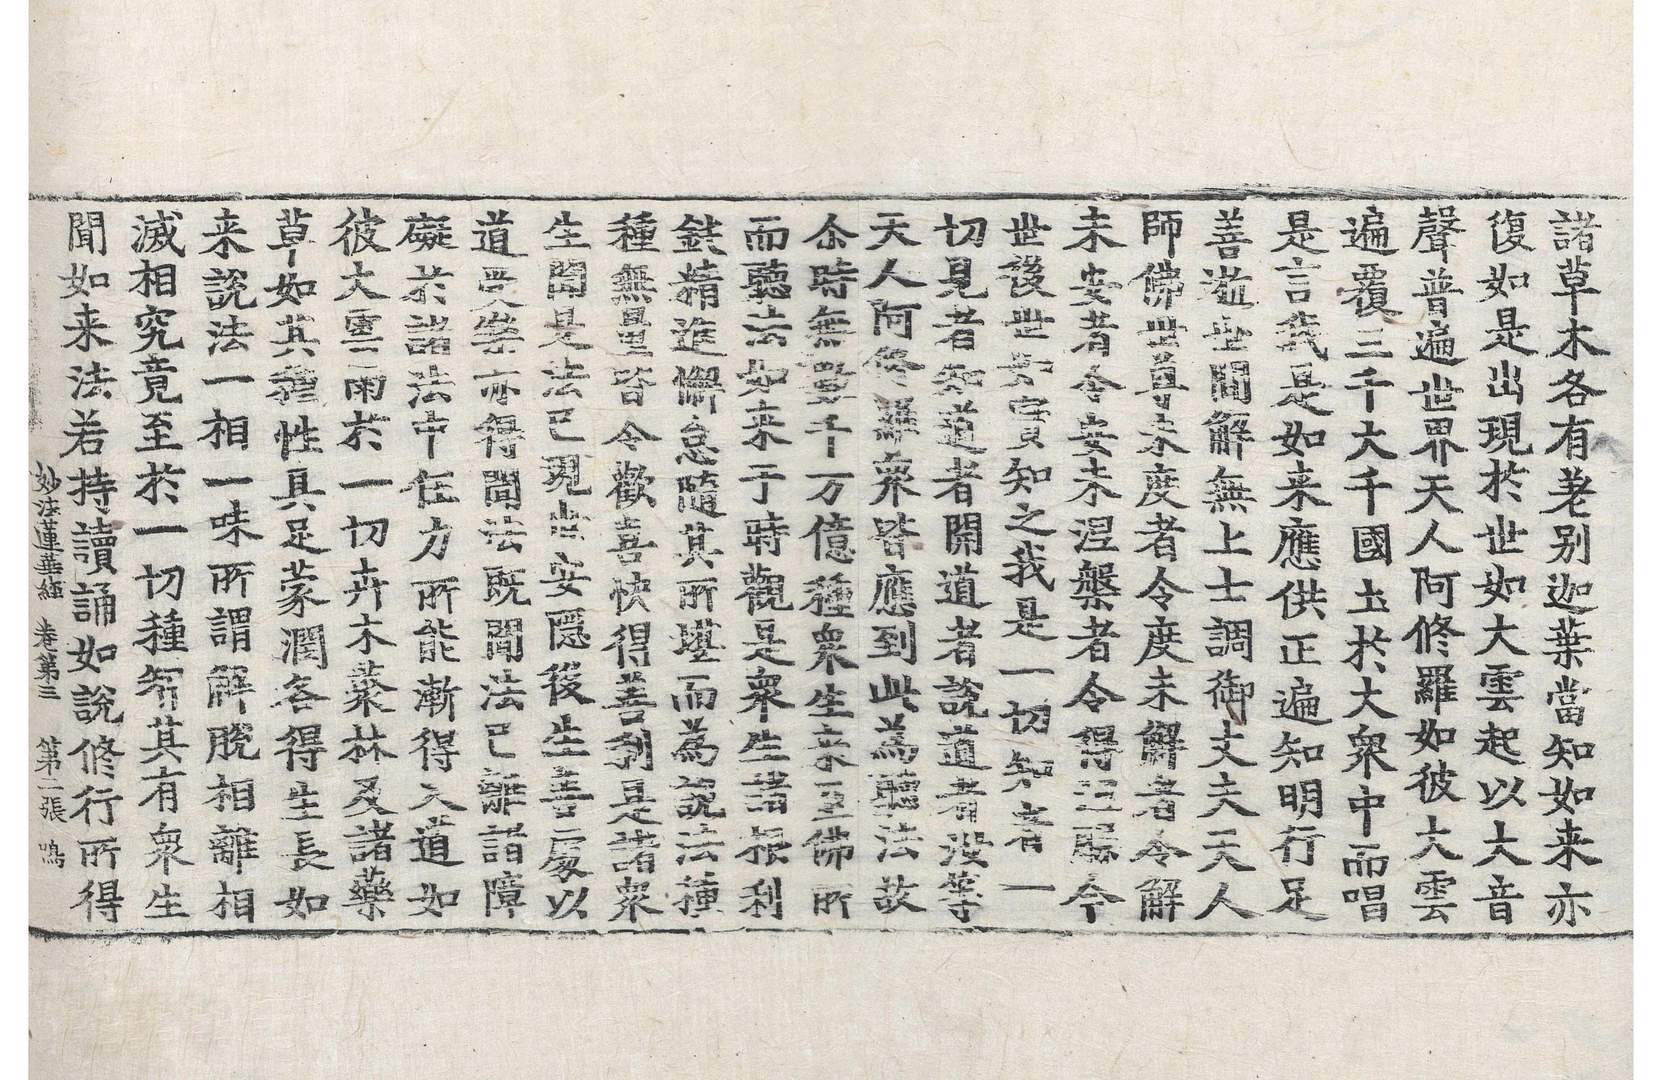 諸草木各有差別迦葉當知如来亦
復如是出現於世如大雲起以大音
聲普遍世界天人阿修羅如彼大雲
遍覆三千大千國土於大衆中而唱
是言我是如来應供正遍知明行足
善逝世間解無上士調御丈夫天人
師佛世尊未度者令度未解者令解
未安者令安未涅槃者令得涅槃今
世後世如實知之我是一切知者一
切見者知道者開道者說道者汝等
天人阿修羅衆皆應到此為聽法故
尒時無數千万億種衆生来至佛所
而聽法如来于時觀是衆生諸根利
鈍精進懈怠隨其所堪而為說法種
種無量皆令歡喜快得善利是諸衆
生聞是法已現世安隱後生善處以
道受樂亦得聞法既聞法已離諸障
礙於諸法中任力所能漸得入道如
彼大雲雨於一切卉木藂林及諸藥
草如其種性具足蒙潤各得生長如
来說法一相一味所謂解脫相離相
滅相究竟至於一切種智其有衆生
聞如来法若持讀誦如說修行所得
妙法蓮華經 卷第三 第二張 鳴